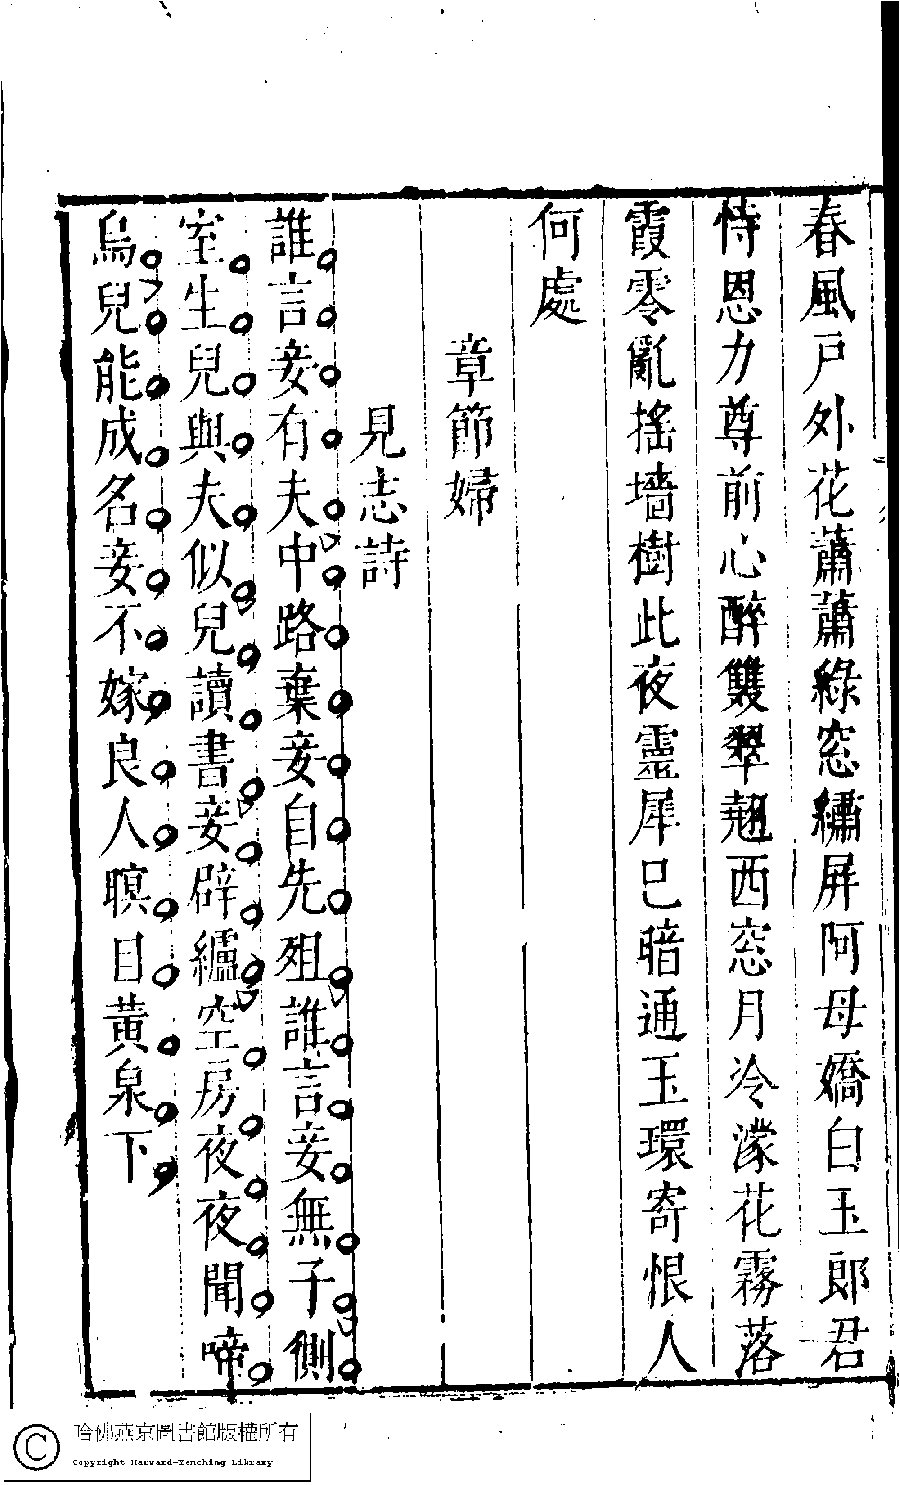 春風戸外花蕭蕭綠窓繡屏阿母嬌白玉郎君
恃恩力尊前心醉雙翠翹西窓月冷濛花霧落
霞零亂搖墻樹此夜靈犀已暗通玉環寄恨人
何處
章節婦
見志詩
誰言妾有夫中路棄妾自先殂誰言妾無子側
室生兒與夫似兒讀書妾辟纑空房夜夜聞啼
烏兒能成名妾不嫁良人瞑目黄泉下
哈佛燕京圖書館版權所有
Copyright Harvard-Yenching Library